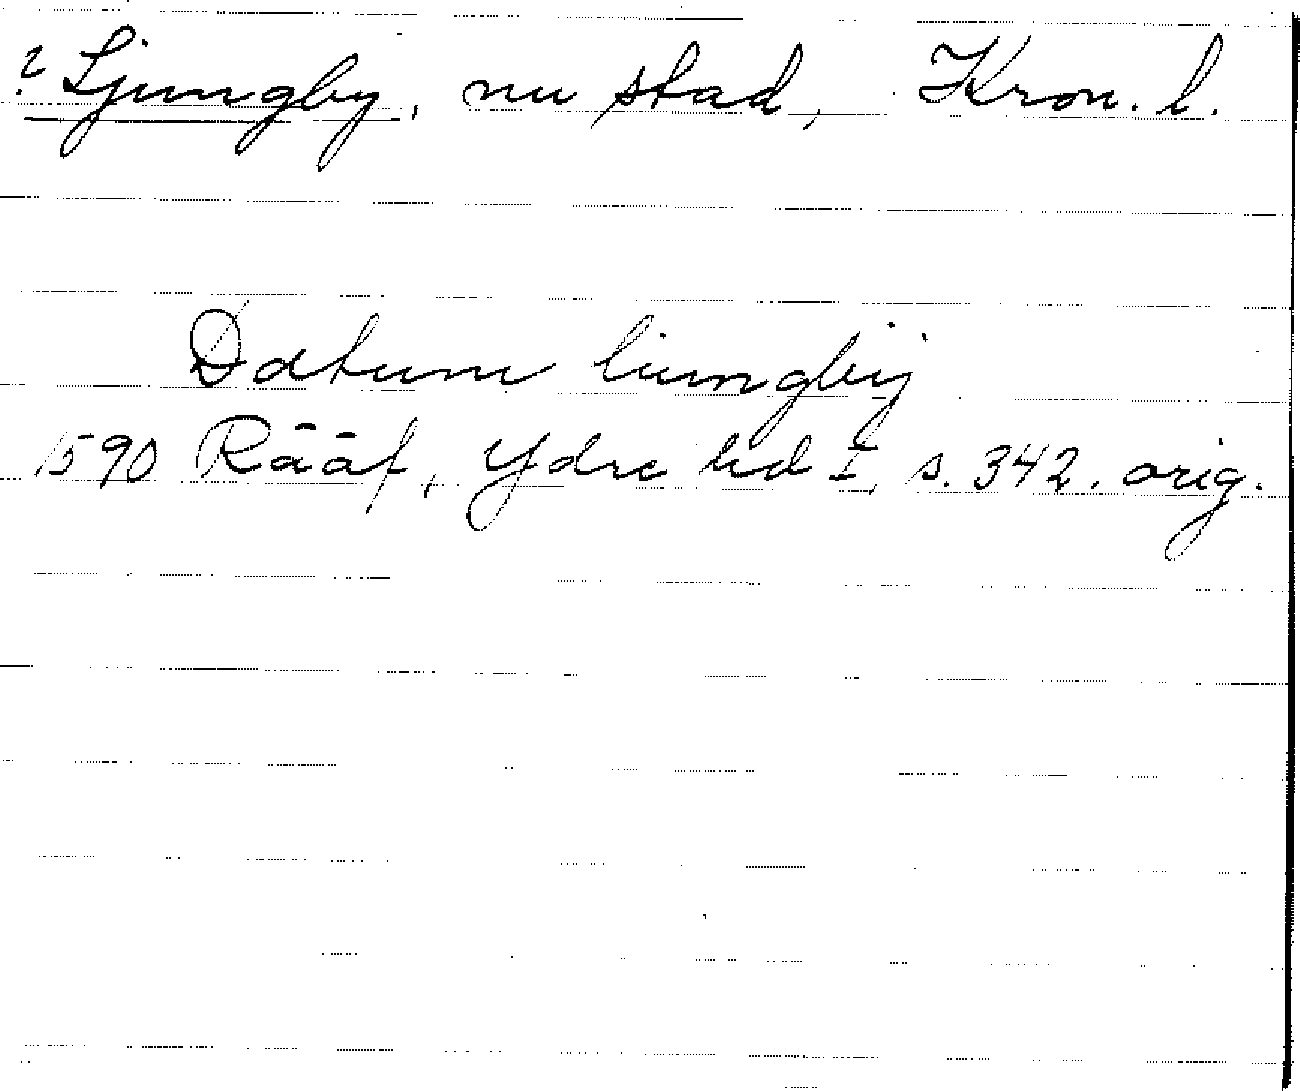 ? Ljungby, nu stad, Kron. l.
Datum liungbij
1590 Rääf, Ydre hd I, s. 342. orig.